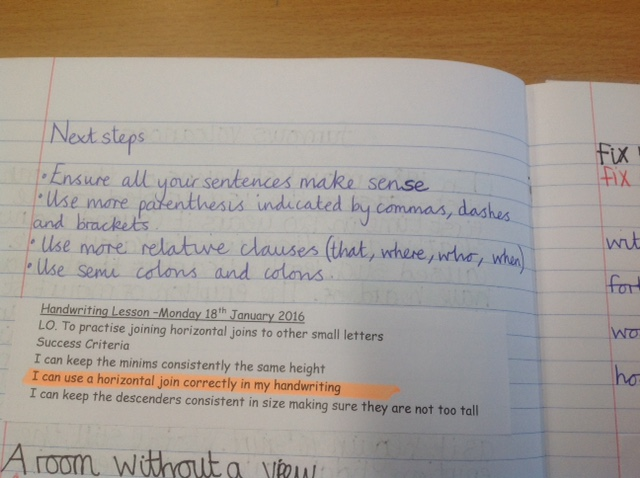 Next steps
• Ensure all your sentences make sense
• Use more parenthesis indicated by commas, dashes
and brackets.
• Use more relative clauses (that, where, who, when)
• Use semi colons and colons.
Handwriting Lesson –Monday 18th January 2016
LO. To practise joining horizontal joins to other small letters
Success Criteria
I can keep the minims consistently the same height
I can use a horizontal join correctly in my handwriting
I can keep the descenders consistent in size making sure they are not too tall
A room without a view
fix
fix